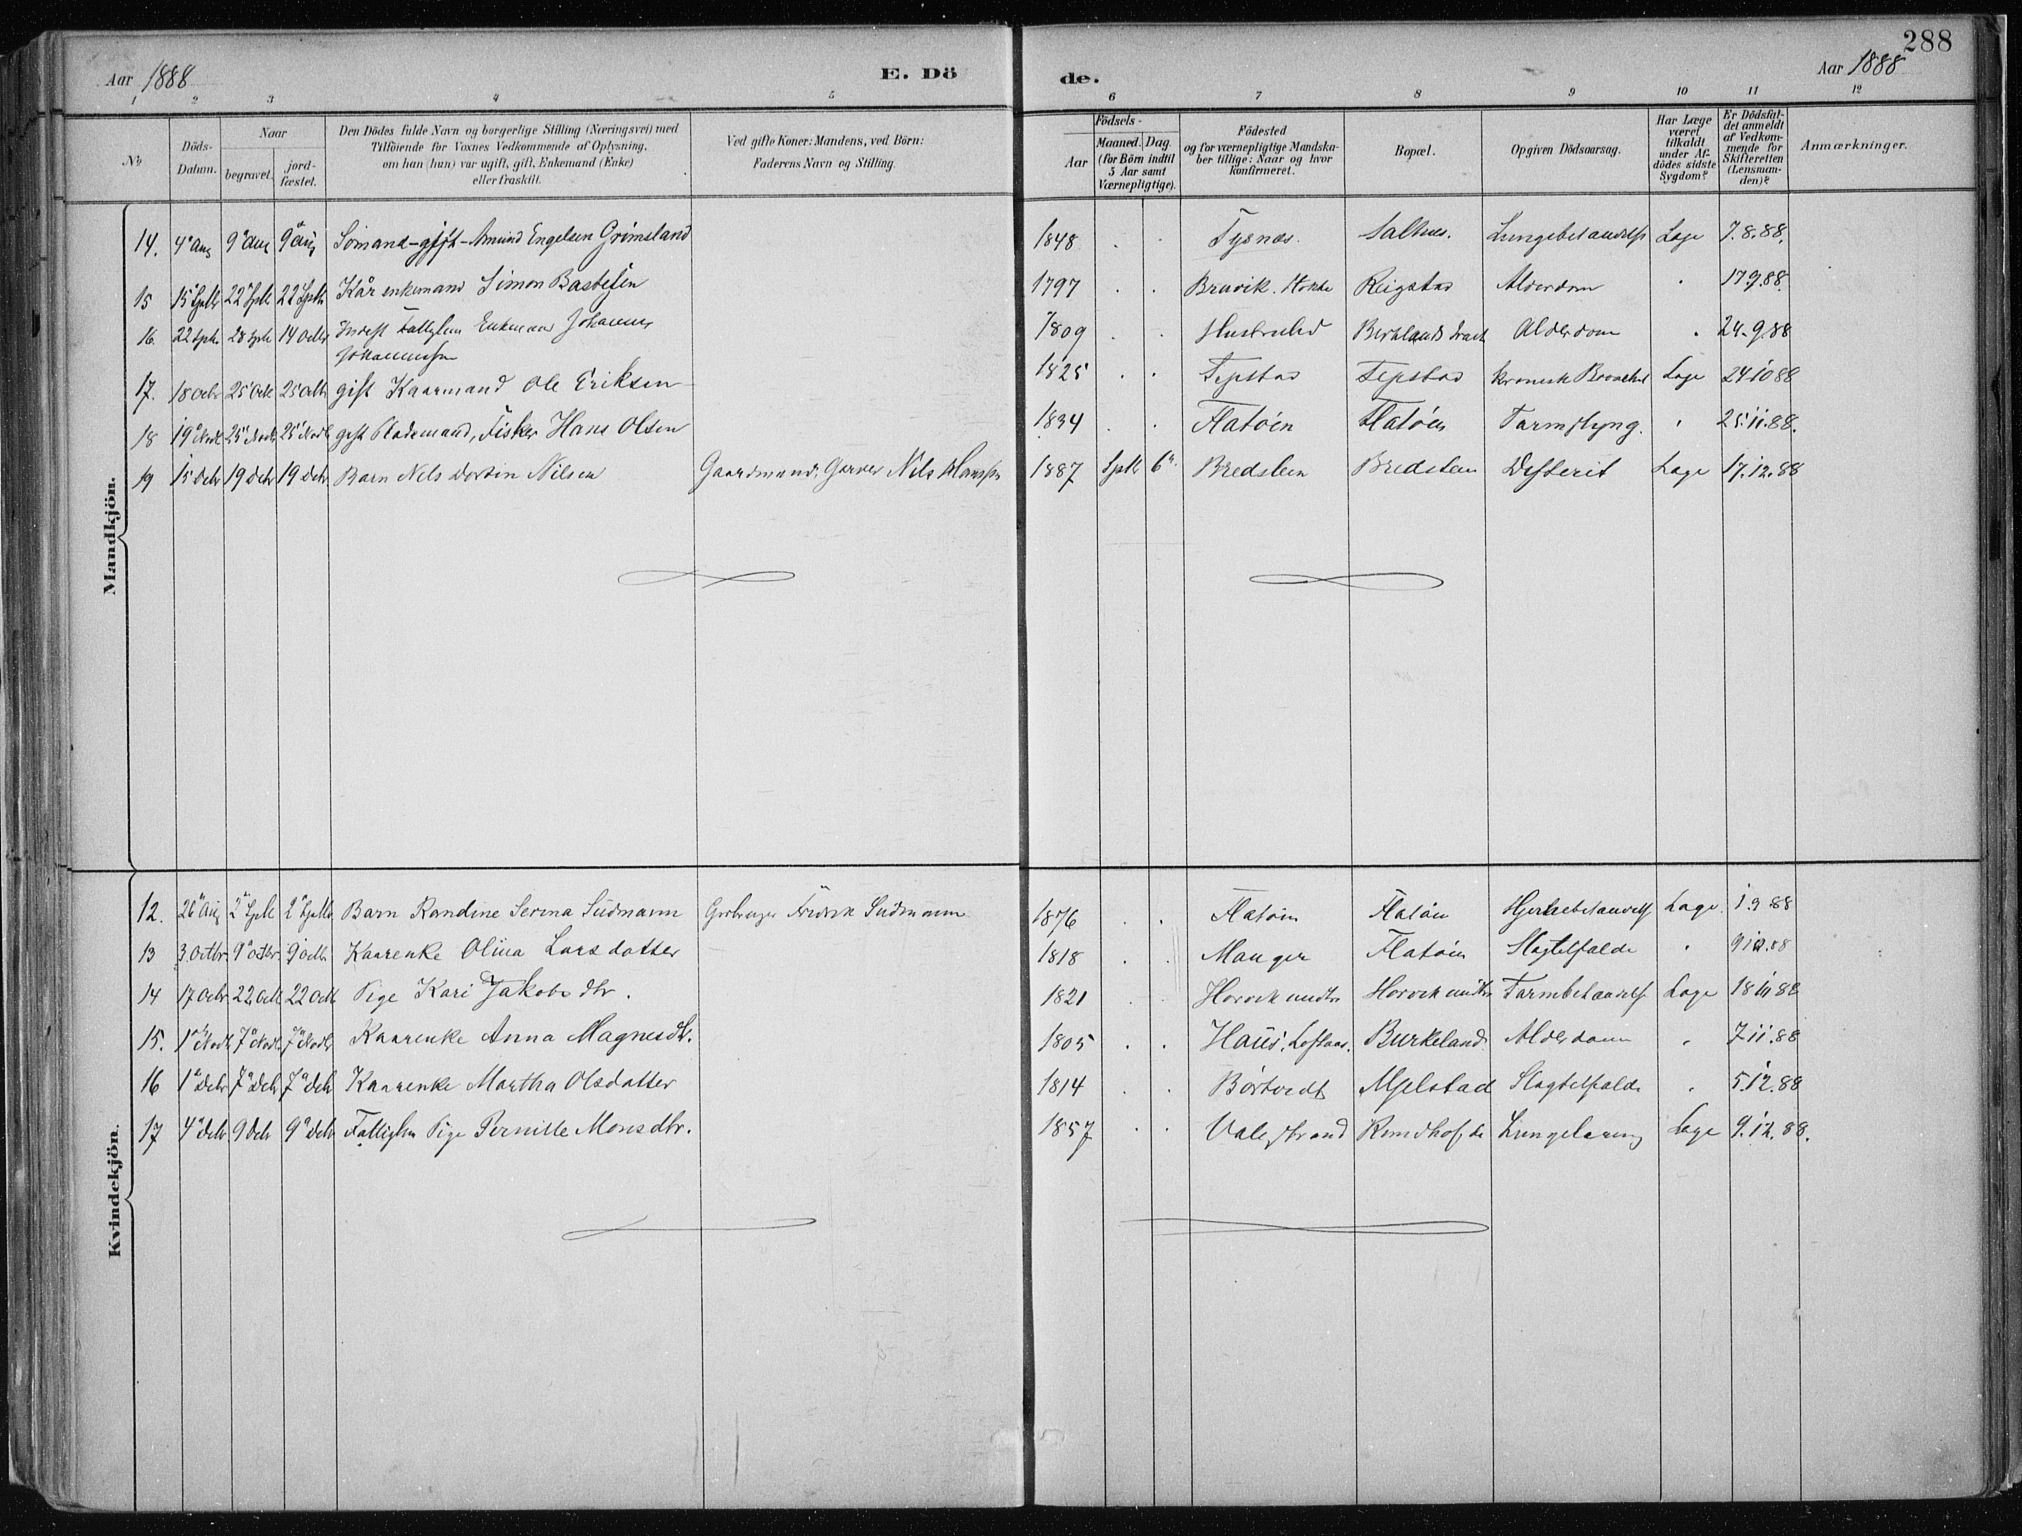 288
Aar 1888 E. Dö de. Aar 1888
1 2 3 4 5 6 7 8 9 10 11 12
No
Döds-Datum.
Naar
begravet.
jord-fæstet.
Den Dödes fulde Navn og borgerlige Stilling (Næringsvei) med
Tilföiende for Voxnes Vedkommende af Oplysning,
om han (hun) var ugift, gift, Enkemand (Enke)
eller fraskilt.
Ved gifte Koner: Mandens, ved Börn:
Faderens Navn og Stilling.
Födsels-
Aar
Maaned. Dag.
(for Börn indtil
5 Aar samt
Værnepligtige).
Födested
og for værnepligtige Mandska-
ber tillige: Naar og hvor
konfirmeret.
Bopæl.
Opgiven Dödsaarsag.
Har Læge
været
tilkaldt
under Af-
dödes sidste
Sygdom?
Er Dödsfal-
det anmeldt
af Vedkom-
mende for
Skifteretten
(Lensman-
den)?
Anmærkninger.
Mandkjön.
14. 4 Aug 9 Aug 9 Aug Sömand-gift-Amund Engelsen Grimsland 1848 . . Tysnæs. Salhus. Lungebetændelse Læge 7.8.88.
15 15 Sptb 22 Sptb 22 Sptb Kår enkemand Simon Bastesen 1797 . . Bruvik. Reigstad Alderdom . 17.9.88.
16. 22 Sptb 28 Sptb 14 Octbr Fattiglem Enkemand Johannes
Johannessen 1809 . . Birkelands Alderdom . 24.9.88
17. 18 Octbr 25 Octb 25 Octb gift Kaarmand Ole Eriksen 1825 . . Tepstad Tepstad kronisk Læge 24.10.88
18 19 Novb 25 Novb 25 Novb gift Pladsmand, Fisker Hans Olsen 1834 . . Flatöen Flatöen Tarmslyng. . 25.11.88.
19 15 Decbr 19 Decbr 19 Decbr Barn Nels Nilsen Gaardmand, Garver Nils Hanssen 1887 Sptb 6 Bredsteen Bredsteen Difterit Læge 17.12.88
Kvindekjön.
12. 26 Aug 2 Sptb 2 Sptb Barn Randine Serina Sudmann Fredrik Sudmann 1876 . . Flatöen Flatöen Hjernebetændelse Læge. 1.9.88
13 3 Octbr 9 Octbr 9 Octb Kaarenke Oliua Larsdatter 1818 . . Manger Flatöen Slagtilfælde . 9.10.88
14 17 Octbr 22 Octb 22 Octb Pige Kari Jakobsdtr. 1821 . . Tarmbetændelse Læge 18.10.88
15. 1 Novb 7 Novb 7 Novb Kaarenke Anna Magnesdtr. 1805 . . Haus, Loftaas. Burkeland Alderdom . 7.11.88
16 1 Decbr 7 Decb 7 Decb Kaarenke Martha Olsdatter 1814 . . Börtveidt Mjelstad Slagtilfælde . 5.12.88
17 4 Decb 9 Decb 9 Decb Fattiglem Pige Pernille Monsdtr. 1857 . . Valestrand Lungetæring Læge 9.12.88.